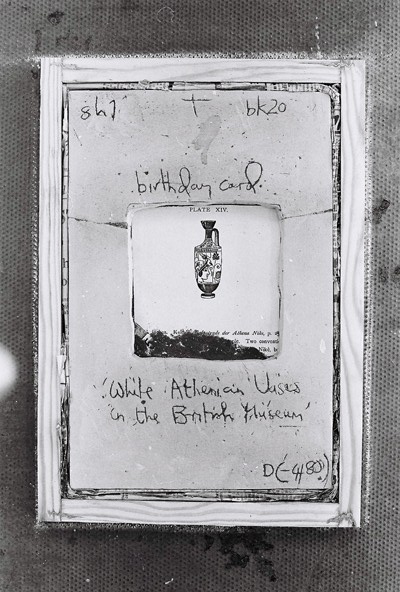 T bk20
birthday card.
PLATE XIV.
der Athena Nike, p.
Two
Nikê,
'White Athenian Vases
in the British Museum'
D(-480)